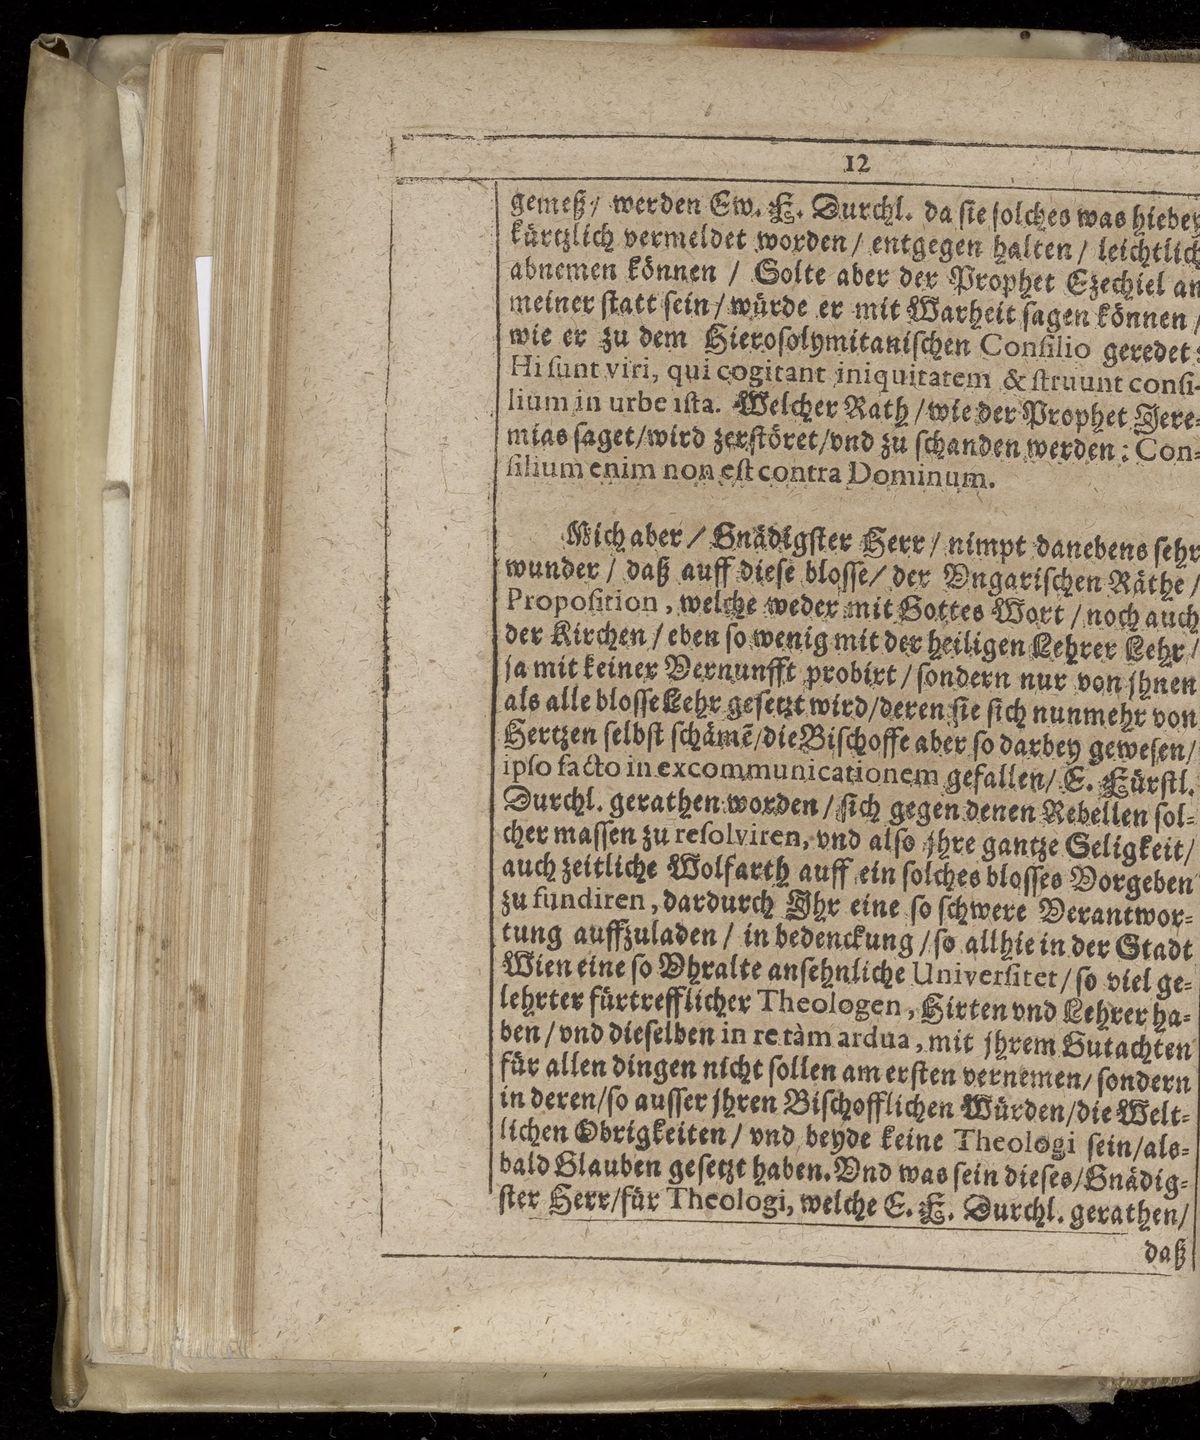 12
gemeß / werden Ew. F. Durchl. da sie solches was hiebey
kürtzlich vermeldet worden / entgegen halten / leichtlich
abnemen können / Solte aber der Prophet Ezechiel an
meiner statt sein / würde er mit Warheit sagen können /
wie er zu dem Hierosolymitanischen Consilio geredet:
Hi sunt viri, qui cogitant iniquitatem & struunt consi-
lium in urbe ista. Welcher Rath / wie der Prophet Jere-
mias saget / wird zerstöret / vnd zu schanden werden: Con-
silium enim non est contra Dominum.
Mich aber / Gnädigster Herr / nimpt danebens sehr
wunder / daß auff diese blosse / der Vngarischen Räthe /
Proposition, welche weder mit Gottes Wort / noch auch
der Kirchen / eben so wenig mit der heiligen Lehrer Lehr /
ja mit keiner Vernunfft probirt / sondern nur von jhnen
als alle blosse Lehr gesetzt wird / deren sie sich nunmehr von
Hertzen selbst schämẽ / die Bischoffe aber so darbey gewesen /
ipso facto in excommunicationem gefallen / E. Fürstl.
Durchl. gerathen worden / sich gegen denen Rebellen sol-
cher massen zu resolviren, vnd also jhre gantze Seligkeit /
auch zeitliche Wolfarth auff ein solches blosses Vorgeben
zu fundiren, dardurch Jhr eine so schwere Verantwor-
tung auffzuladen / in bedenckung / so allhie in der Stadt
Wien eine so Vhralte ansehnliche Universitet / so viel ge-
lehrter fürtrefflicher Theologen, Hirten vnd Lehrer ha-
ben / vnd dieselben in re tàm ardua, mit jhrem Gutachten
für allen dingen nicht sollen am ersten vernemen / sondern
in deren / so ausser jhren Bischofflichen Würden / die Welt-
lichen Obrigkeiten / vnd beyde keine Theologi sein / als-
bald Glauben gesetzt haben. Vnd was sein dieses / Gnädig-
ster Herr / für Theologi, welche E. F. Durchl. gerathen /
daß